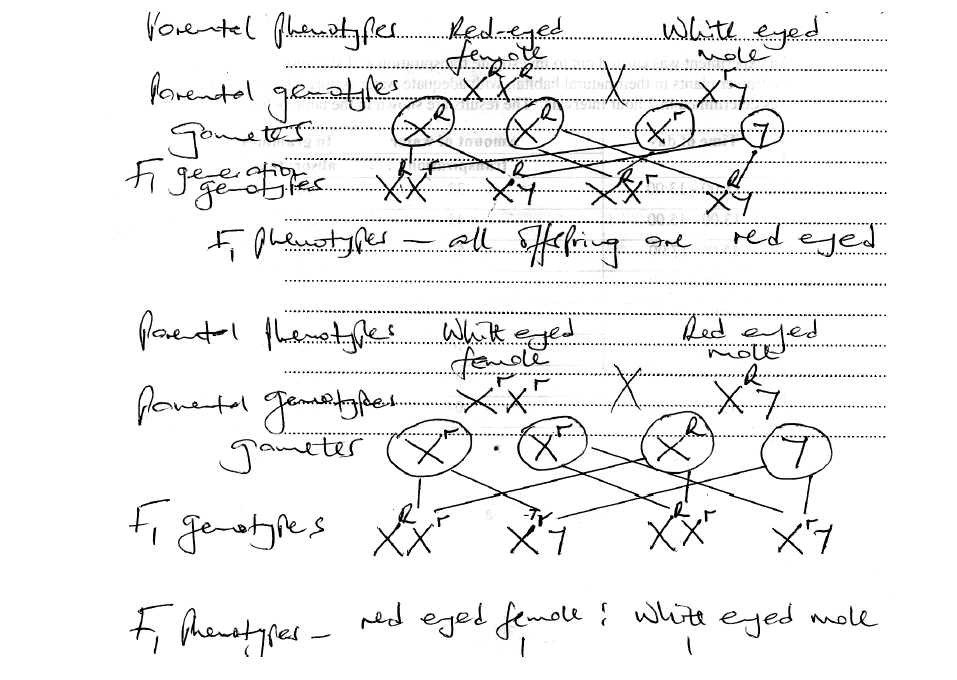 Parental phenotypes Red-eyed female White eyed male
Parental genotypes XᴿXᴿ X XʳY
gametes Xᴿ Xᴿ Xʳ Y
F₁ generation genotypes XᴿXʳ XᴿY XᴿXʳ XᴿY
F₁ phenotypes – all offspring are red eyed
Parental phenotypes White eyed female Red eyed male
Parental genotypes XʳXʳ X XᴿY
gametes Xʳ Xʳ Xᴿ Y
F₁ genotypes XᴿXʳ XʳY XᴿXʳ XʳY
F₁ phenotypes – red eyed female : White eyed male
1 1